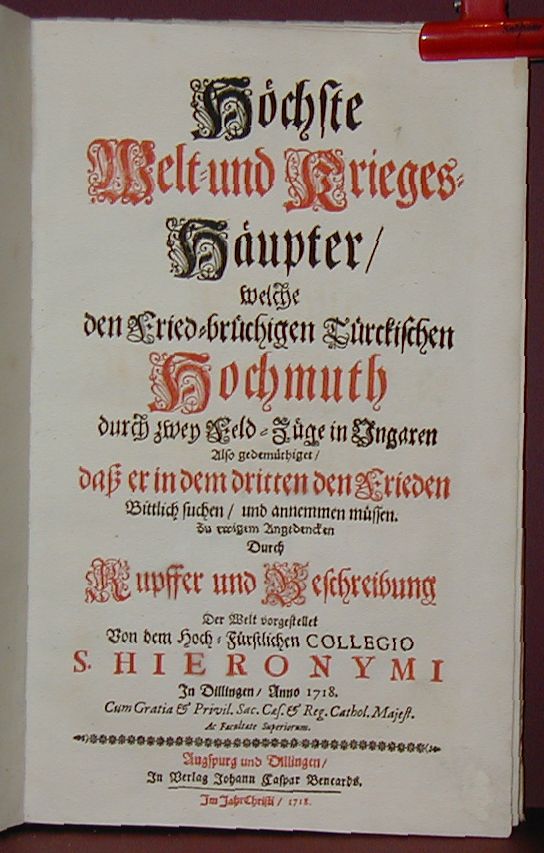 Höchste
Welt-und Krieges-
Häupter/
welche
den Fried-brüchigen Türckischen
Hochmuth
durch zwey Feld-Züge in Ungaren
Also gedemüthiget/
daß er in dem dritten den Frieden
Bittlich suchen/ und annemmen müssen.
Zu ewigem Angedencken
Durch
Kupffer und Beschreibung
Der Welt vorgestellet
Von dem Hoch-Fürstlichen COLLEGIO
S. HIERONYMI
In Dillingen/ Anno 1718.
Cum Gratia & Privil. Sac. Cæs. & Reg. Cathol. Majest.
Ac Facultate Superiorum.
Augspurg und Dillingen/
In Verlag Johann Caspar Bencards.
Im Jahr Christi/ 1718.